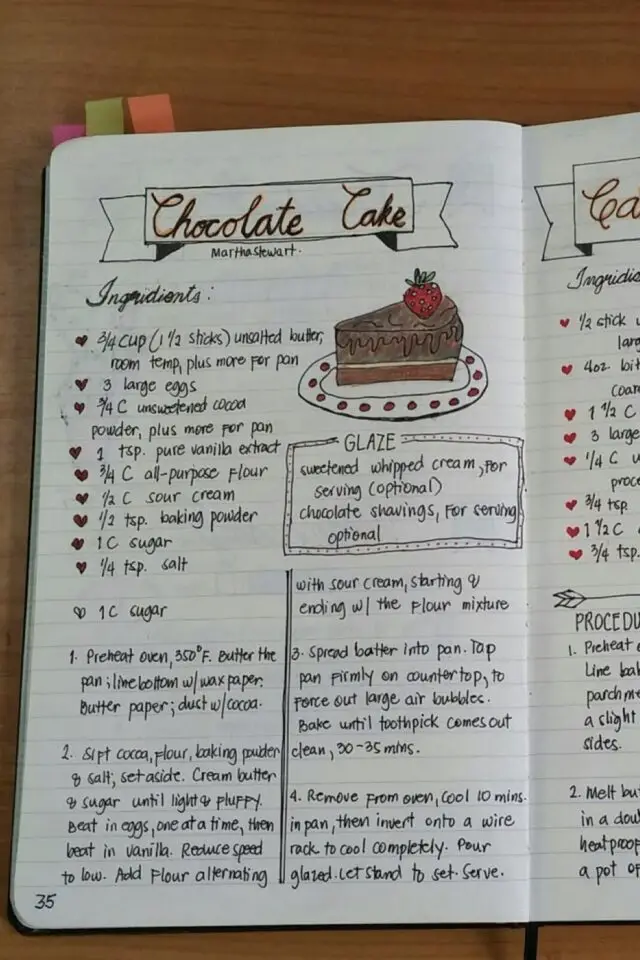 Chocolate Cake
Martha Stewart.
Ingridients:
3/4 cup (1 1/2 sticks) unsalted butter,
room temp, plus more for pan
3 large eggs
3/4 C unsweetened cocoa
powder, plus more for pan
1 tsp. pure vanilla extract
3/4 C all-purpose flour
1/2 C sour cream
1/2 tsp. baking powder
1 C sugar
1/4 tsp. salt
1 C sugar
GLAZE
sweetened whipped cream, for
serving (optional)
chocolate shavings, for serving
optional
1. Preheat oven, 350°F. Butter the
pan; line bottom w/ wax paper.
Butter paper; dust w/ cocoa.
2. Sift cocoa, flour, baking powder
& salt; set aside. Cream butter
& sugar until light & fluffy.
Beat in eggs, one at a time, then
beat in vanilla. Reduce speed
to low. Add flour alternating
with sour cream, starting &
ending w/ the flour mixture
3. Spread batter into pan. Tap
pan firmly on countertop, to
force out large air bubbles.
Bake until toothpick comes out
clean, 30-35 mins.
4. Remove from oven, cool 10 mins.
in pan, then invert onto a wire
rack to cool completely. Pour
glazed. Let stand to set. Serve.
35
Ca
Ingridie
1/2 stick
larg
4oz. bit
coar
1 1/2 C
3 large
1/4 C
proce
3/4 tsp
1 1/2 C
3/4 tsp.
PROCEDU
1. Preheat
Line bak
parchme
a slight
sides.
2. Melt bu
in a dou
heatproof
a pot of